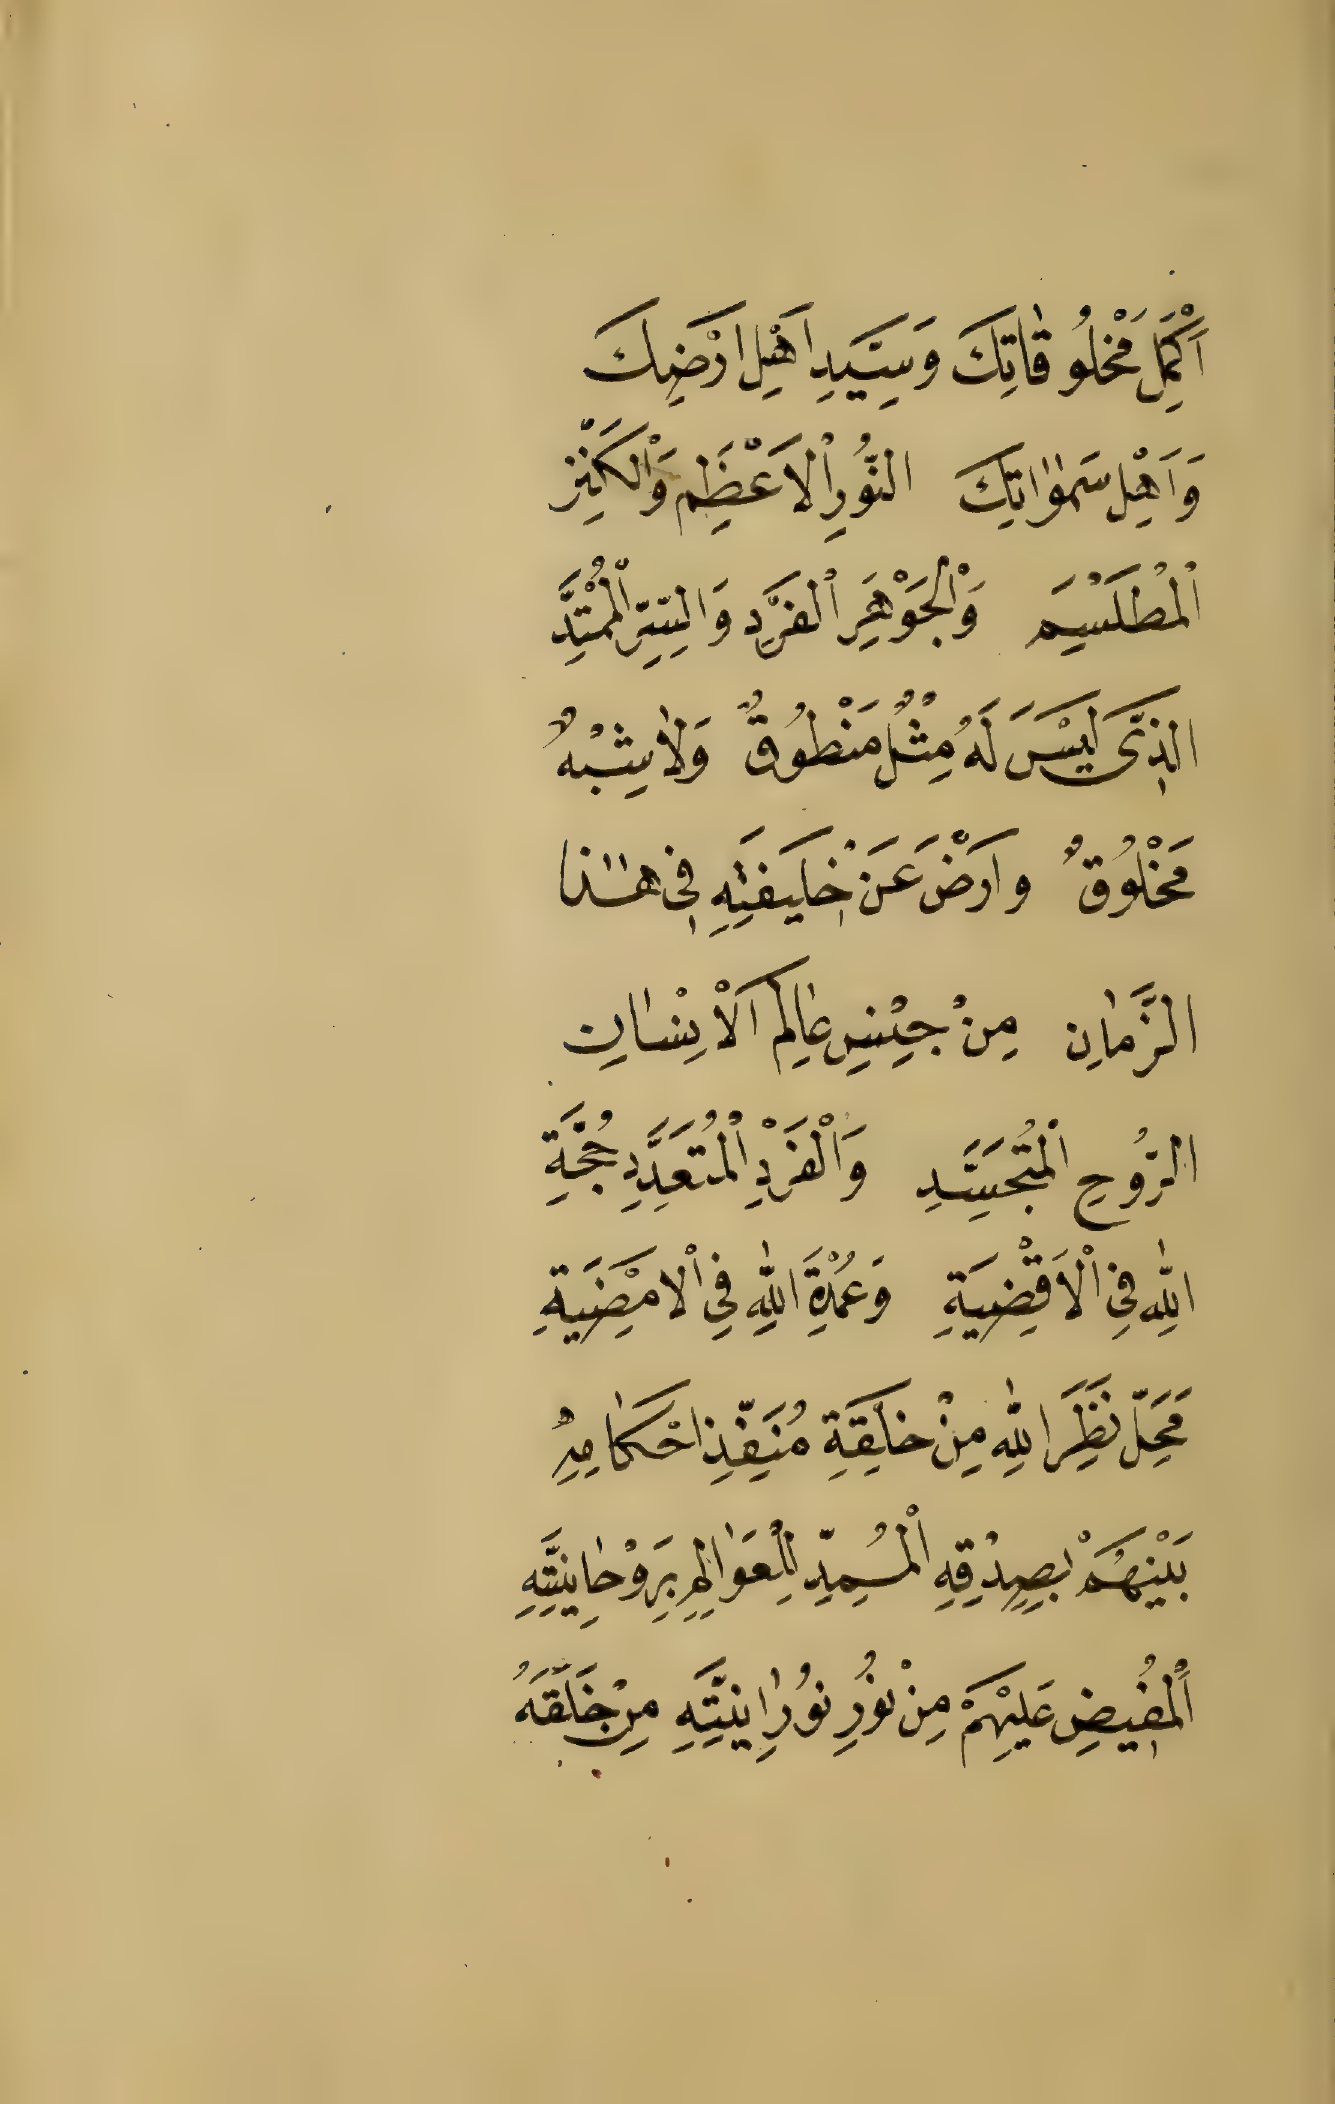 اَكْمَلِ مَخْلُوقَاتِكَ وَسَيِّدِ اَهْلِ اَرْضِكَ
وَاَهْلِ سَمٰوَاتِكَ النُّورِ الْاَعْظَمِ وَالْكَنْزِ
الْمُطَلْسَمِ وَالْجَوْهَرِ الْفَرْدِ وَالسِّرِّ الْمُمْتَدِّ
الَّذِى لَيْسَ لَهُ مِثْلٌ مَنْطُوقٌ وَلَا شِبْهٌ
مَخْلُوقٌ وَارْضَ عَنْ خَلِيفَتِهِ فِى هٰذَا
الزَّمَانِ مِنْ جِنْسِ عَالَمِ الْاِنْسَانِ
الرُّوحِ الْمُتَجَسِّدِ وَالْفَرْدِ الْمُتَعَدِّدِ حُجَّةِ
اللهِ فِى الْاَقْضِيَةِ وَعُمْدَةِ اللهِ فِى الْاَمْضِيَةِ
مَحَلِّ نَظَرِ اللهِ مِنْ خَلِقَةِ مُنَفِّذِ اَحْكَامِهِ
بَيْنَهُمْ بِصِدْقِهِ الْمُمِدِّ لِلْعَوَالِمِ بِرَوْحَانِيَّتِهِ
الْمُفِيضِ عَلَيْهِمْ مِنْ نُورِ نُورَانِيَّتِهِ مِنْ خَلَقَهُ